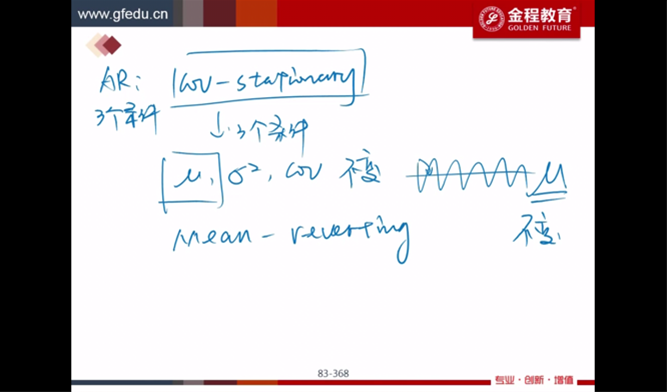 www.gfedu.cn
金程教育
GOLDEN FUTURE
AR: cov-stationary
3个条件
↓ 3个条件
μ, σ², cov 不变 μ
不变
mean-reverting
83-368
专业·创新·增值